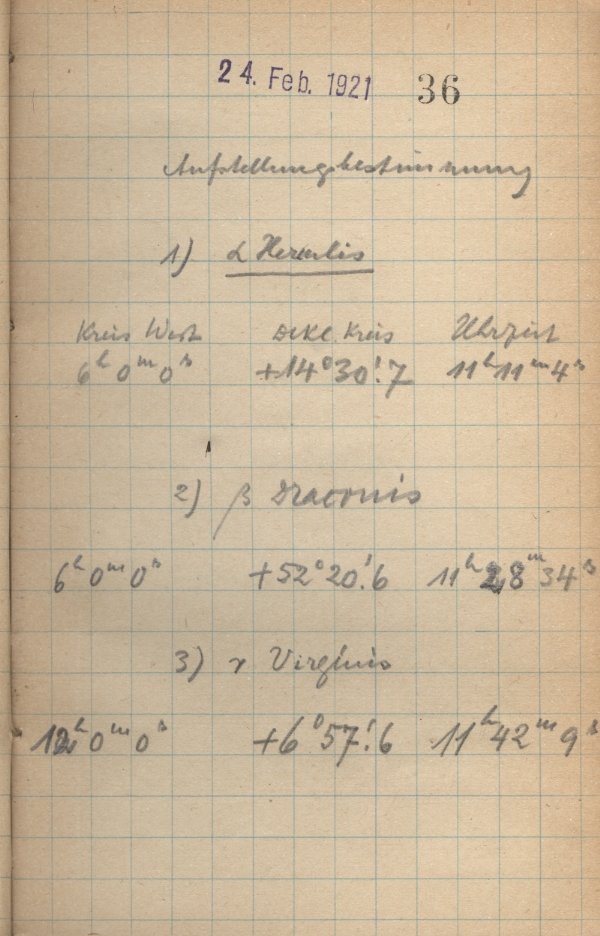 24. Feb. 1921 36
Aufstellungsbestimmung
1) α Herculis
Kreis West Dekl. Kreis Uhrzeit
6ʰ 0ᵐ 0ˢ +14° 30!7 11ʰ 11ᵐ 4ˢ
2) β Draconis
6ʰ 0ᵐ 0ˢ +52° 20!6 11ʰ 28ᵐ 34ˢ
3) τ Virginis
12ʰ 0ᵐ 0ˢ +6° 57!6 11ʰ 42ᵐ 9ˢ